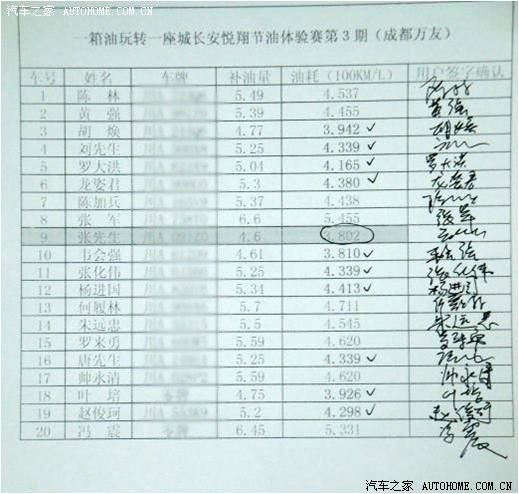 汽车之家 AUTOHOME.COM.CN
一箱油玩转一座城长安悦翔节油体验赛第3期（成都万友）
车号 姓名 车牌 补油量 油耗（100KM/L） 用户签字确认
1 陈 林 5.49 4.537
2 黄 强 5.39 4.455 黄强
3 胡 焕 4.77 3.942 ✓ 胡焕
4 刘先生 5.25 4.339 ✓
5 罗大洪 5.04 4.165 ✓ 罗大洪
6 龙姿君 5.3 4.380 ✓ 龙姿君
7 陈加兵 5.37 4.438
8 张 军 6.6 5.455 张军
9 张先生 4.6 3.802
10 韦会强 4.61 3.810 ✓
11 张化伟 5.25 4.339 ✓ 张化伟
12 杨进国 5.34 4.413 ✓ 杨进国
13 何履林 5.7 4.711
14 朱远忠 5.5 4.545 朱远忠
15 罗来勇 5.59 4.620
16 唐先生 5.25 4.339 ✓
17 帅永清 5.59 4.620 帅永清
18 叶 培 4.75 3.926 ✓ 叶培
19 赵俊珂 5.2 4.298 ✓ 赵俊珂
20 冯 震 6.45 5.331 冯震
汽车之家 AUTOHOME.COM.CN